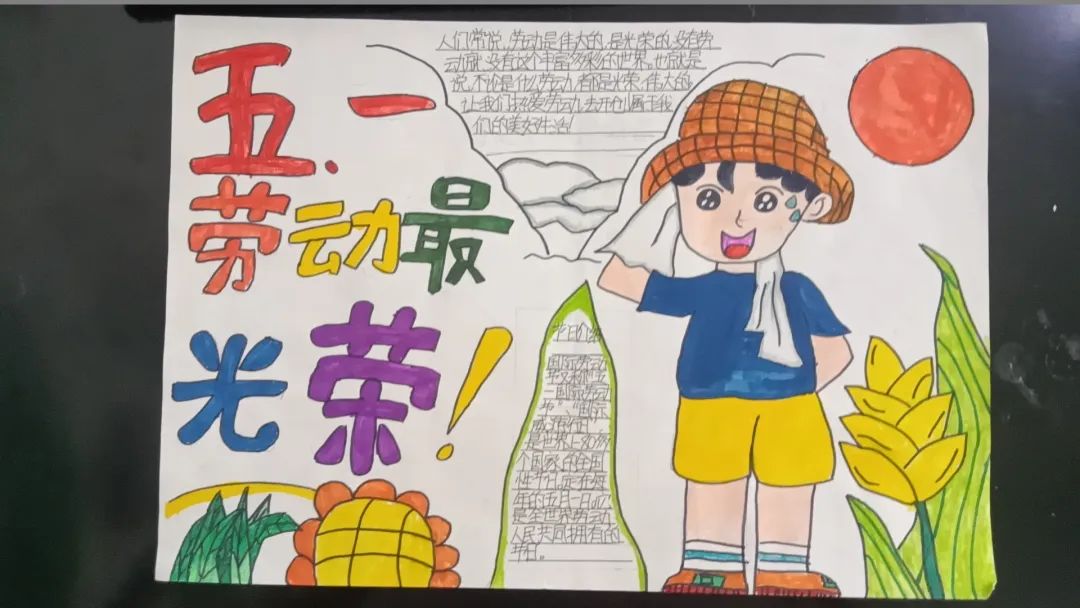 五.一
劳动最
光荣！
人们常说，劳动是伟大的，是光荣的，没有劳
动就没有这个丰富多彩的世界。也就是
说，不论是什么劳动，都是光荣、伟大的
让我们热爱劳动，去开创属于我
们的美好生活！
节日介绍
国际劳动
节又称“五
一国际劳动
节”、“国际
示威游行日”
是世界上80多
个国家的全国
性节日。定在每
年的五月一日。它
是全世界劳动
人民共同拥有的
节日。